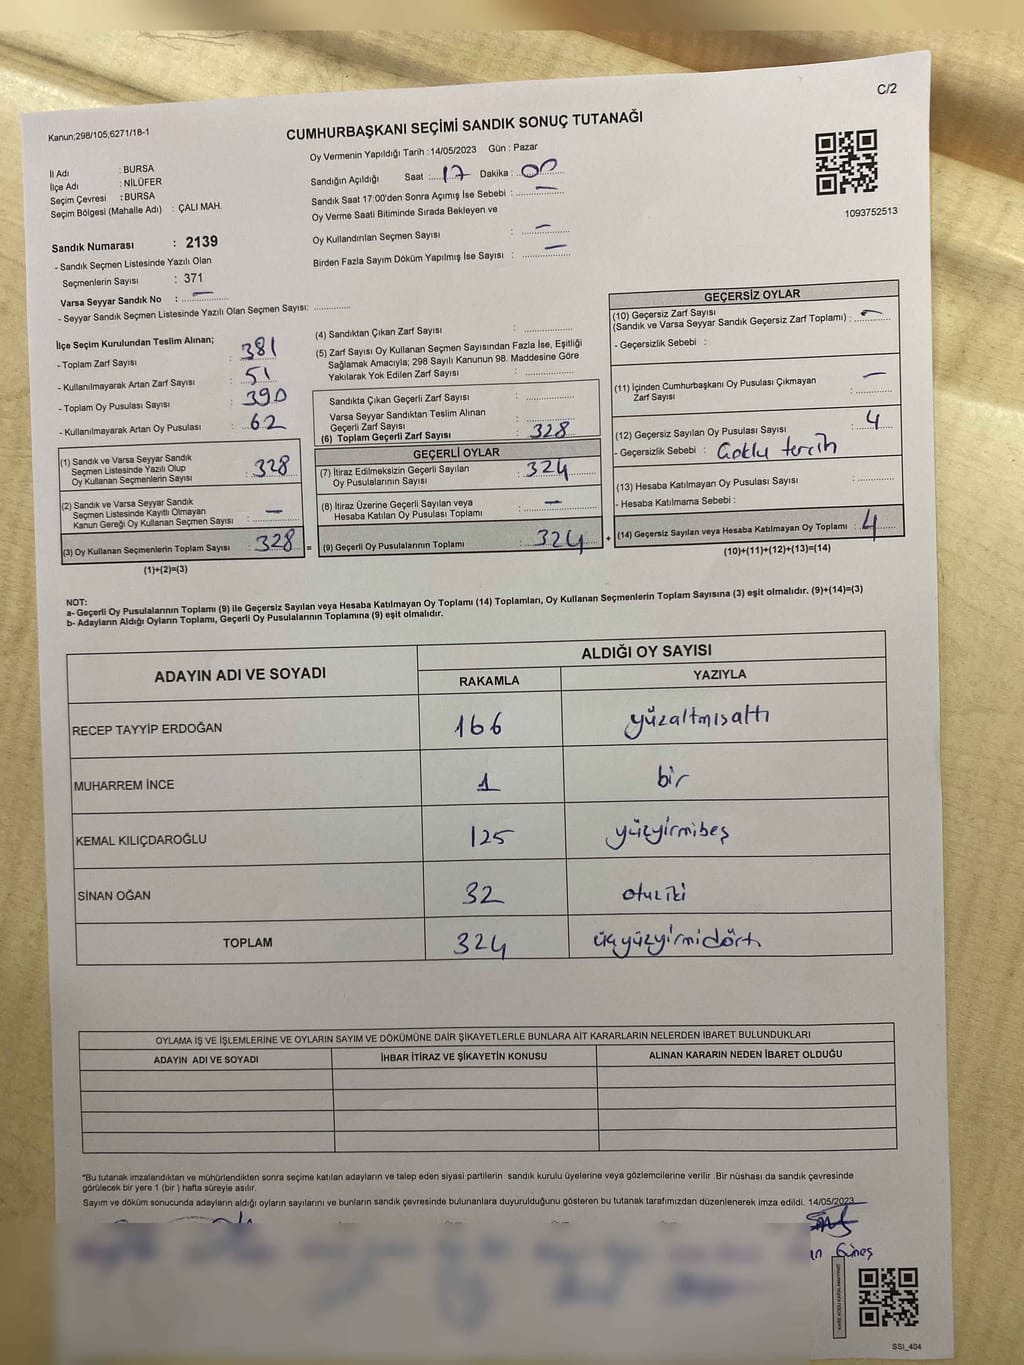 C/2
Kanun;298/105;6271/18-1
CUMHURBAŞKANI SEÇİMİ SANDIK SONUÇ TUTANAĞI
İl Adı : BURSA
İlçe Adı : NİLÜFER
Seçim Çevresi : BURSA
Seçim Bölgesi (Mahalle Adı) : ÇALI MAH.
Sandık Numarası : 2139
- Sandık Seçmen Listesinde Yazılı Olan
Seçmenlerin Sayısı : 371
Varsa Seyyar Sandık No : –
- Seyyar Sandık Seçmen Listesinde Yazılı Olan Seçmen Sayısı:
Oy Vermenin Yapıldığı Tarih :14/05/2023 Gün : Pazar
Sandığın Açıldığı Saat : 17 Dakika : 00
Sandık Saat 17:00'den Sonra Açımış İse Sebebi : –
Oy Verme Saati Bitiminde Sırada Bekleyen ve
Oy Kullandırılan Seçmen Sayısı : –
Birden Fazla Sayım Döküm Yapılmış İse Sayısı : –
1093752513
İlçe Seçim Kurulundan Teslim Alınan;
- Toplam Zarf Sayısı : 381
- Kullanılmayarak Artan Zarf Sayısı : 51
- Toplam Oy Pusulası Sayısı : 390
- Kullanılmayarak Artan Oy Pusulası : 62
(1) Sandık ve Varsa Seyyar Sandık
Seçmen Listesinde Yazılı Olup
Oy Kullanan Seçmenlerin Sayısı : 328
(2) Sandık ve Varsa Seyyar Sandık
Seçmen Listesinde Kayıtlı Olmayan
Kanun Gereği Oy Kullanan Seçmen Sayısı : –
(3) Oy Kullanan Seçmenlerin Toplam Sayısı : 328 =
(1)+(2)=(3)
(4) Sandıktan Çıkan Zarf Sayısı :
(5) Zarf Sayısı Oy Kullanan Seçmen Sayısından Fazla İse, Eşitliği
Sağlamak Amacıyla; 298 Sayılı Kanunun 98. Maddesine Göre
Yakılarak Yok Edilen Zarf Sayısı :
Sandıkta Çıkan Geçerli Zarf Sayısı :
Varsa Seyyar Sandıktan Teslim Alınan
Geçerli Zarf Sayısı :
(6) Toplam Geçerli Zarf Sayısı : 328
GEÇERLİ OYLAR
(7) İtiraz Edilmeksizin Geçerli Sayılan
Oy Pusulalarının Sayısı : 324
(8) İtiraz Üzerine Geçerli Sayılan veya
Hesaba Katılan Oy Pusulası Toplamı : –
(9) Geçerli Oy Pusulalarının Toplamı : 324 +
GEÇERSİZ OYLAR
(10) Geçersiz Zarf Sayısı
(Sandık ve Varsa Seyyar Sandık Geçersiz Zarf Toplamı) : –
- Geçersizlik Sebebi :
(11) İçinden Cumhurbaşkanı Oy Pusulası Çıkmayan
Zarf Sayısı : –
(12) Geçersiz Sayılan Oy Pusulası Sayısı : 4
- Geçersizlik Sebebi : Çoklu tercih
(13) Hesaba Katılmayan Oy Pusulası Sayısı :
- Hesaba Katılmama Sebebi :
(14) Geçersiz Sayılan veya Hesaba Katılmayan Oy Toplamı : 4
(10)+(11)+(12)+(13)=(14)
NOT:
a- Geçerli Oy Pusulalarının Toplamı (9) ile Geçersiz Sayılan veya Hesaba Katılmayan Oy Toplamı (14) Toplamları, Oy Kullanan Seçmenlerin Toplam Sayısına (3) eşit olmalıdır. (9)+(14)=(3)
b- Adayların Aldığı Oyların Toplamı, Geçerli Oy Pusulalarının Toplamına (9) eşit olmalıdır.
ADAYIN ADI VE SOYADI ALDIĞI OY SAYISI
RAKAMLA YAZIYLA
RECEP TAYYİP ERDOĞAN 166 yüzaltmışaltı
MUHARREM İNCE 1 bir
KEMAL KILIÇDAROĞLU 125 yüzyirmibeş
SİNAN OĞAN 32 otuziki
TOPLAM 324 üçyüzyirmidört
OYLAMA İŞ VE İŞLEMLERİNE VE OYLARIN SAYIM VE DÖKÜMÜNE DAİR ŞİKAYETLERLE BUNLARA AİT KARARLARIN NELERDEN İBARET BULUNDUKLARI
ADAYIN ADI VE SOYADI İHBAR İTİRAZ VE ŞİKAYETİN KONUSU ALINAN KARARIN NEDEN İBARET OLDUĞU
*Bu tutanak imzalandıktan ve mühürlendikten sonra seçime katılan adayların ve talep eden siyasi partilerin sandık kurulu üyelerine veya gözlemcilerine verilir .Bir nüshası da sandık çevresinde
görülecek bir yere 1 (bir ) hafta süreyle asılır.
Sayım ve döküm sonucunda adayların aldığı oyların sayılarını ve bunların sandık çevresinde bulunanlara duyurulduğunu gösteren bu tutanak tarafımızdan düzenlenerek imza edildi. 14/05/2023
Güneş
SSI_404